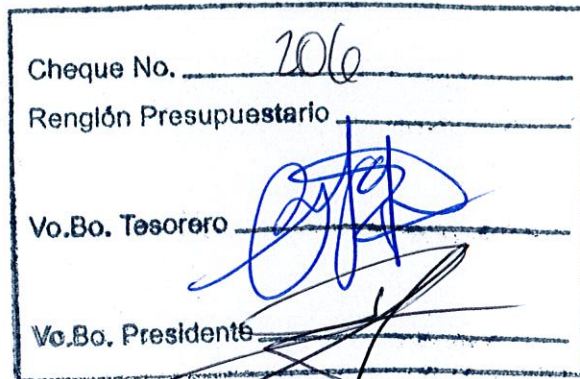 Cheque No. 206
Renglón Presupuestario
Vo.Bo. Tesorero
Vo.Bo. Presidente